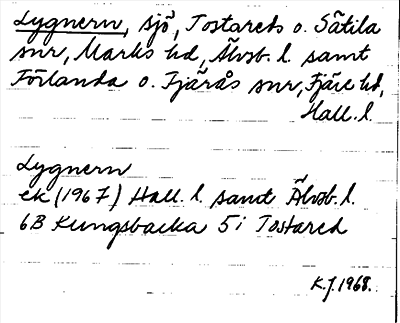 Lygnern, sjö, Tostareds o. Sätila
snr, Marks hd, Älvsb. l. samt
Förlanda o. Fjärås snr, Fjäre hd,
Hall. l.
Lygnern
ek (1967) Hall. l. samt Älvsb. l.
6B Kungsbacka 5i Tostared
K.J. 1968.